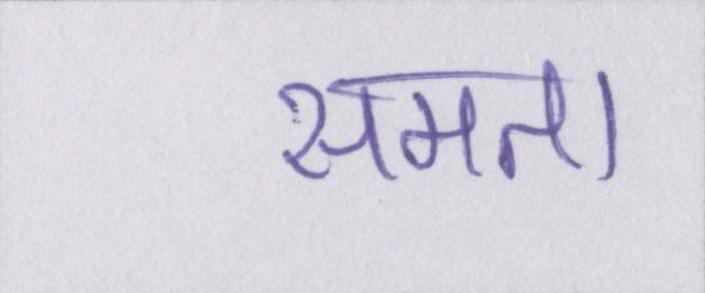 समता